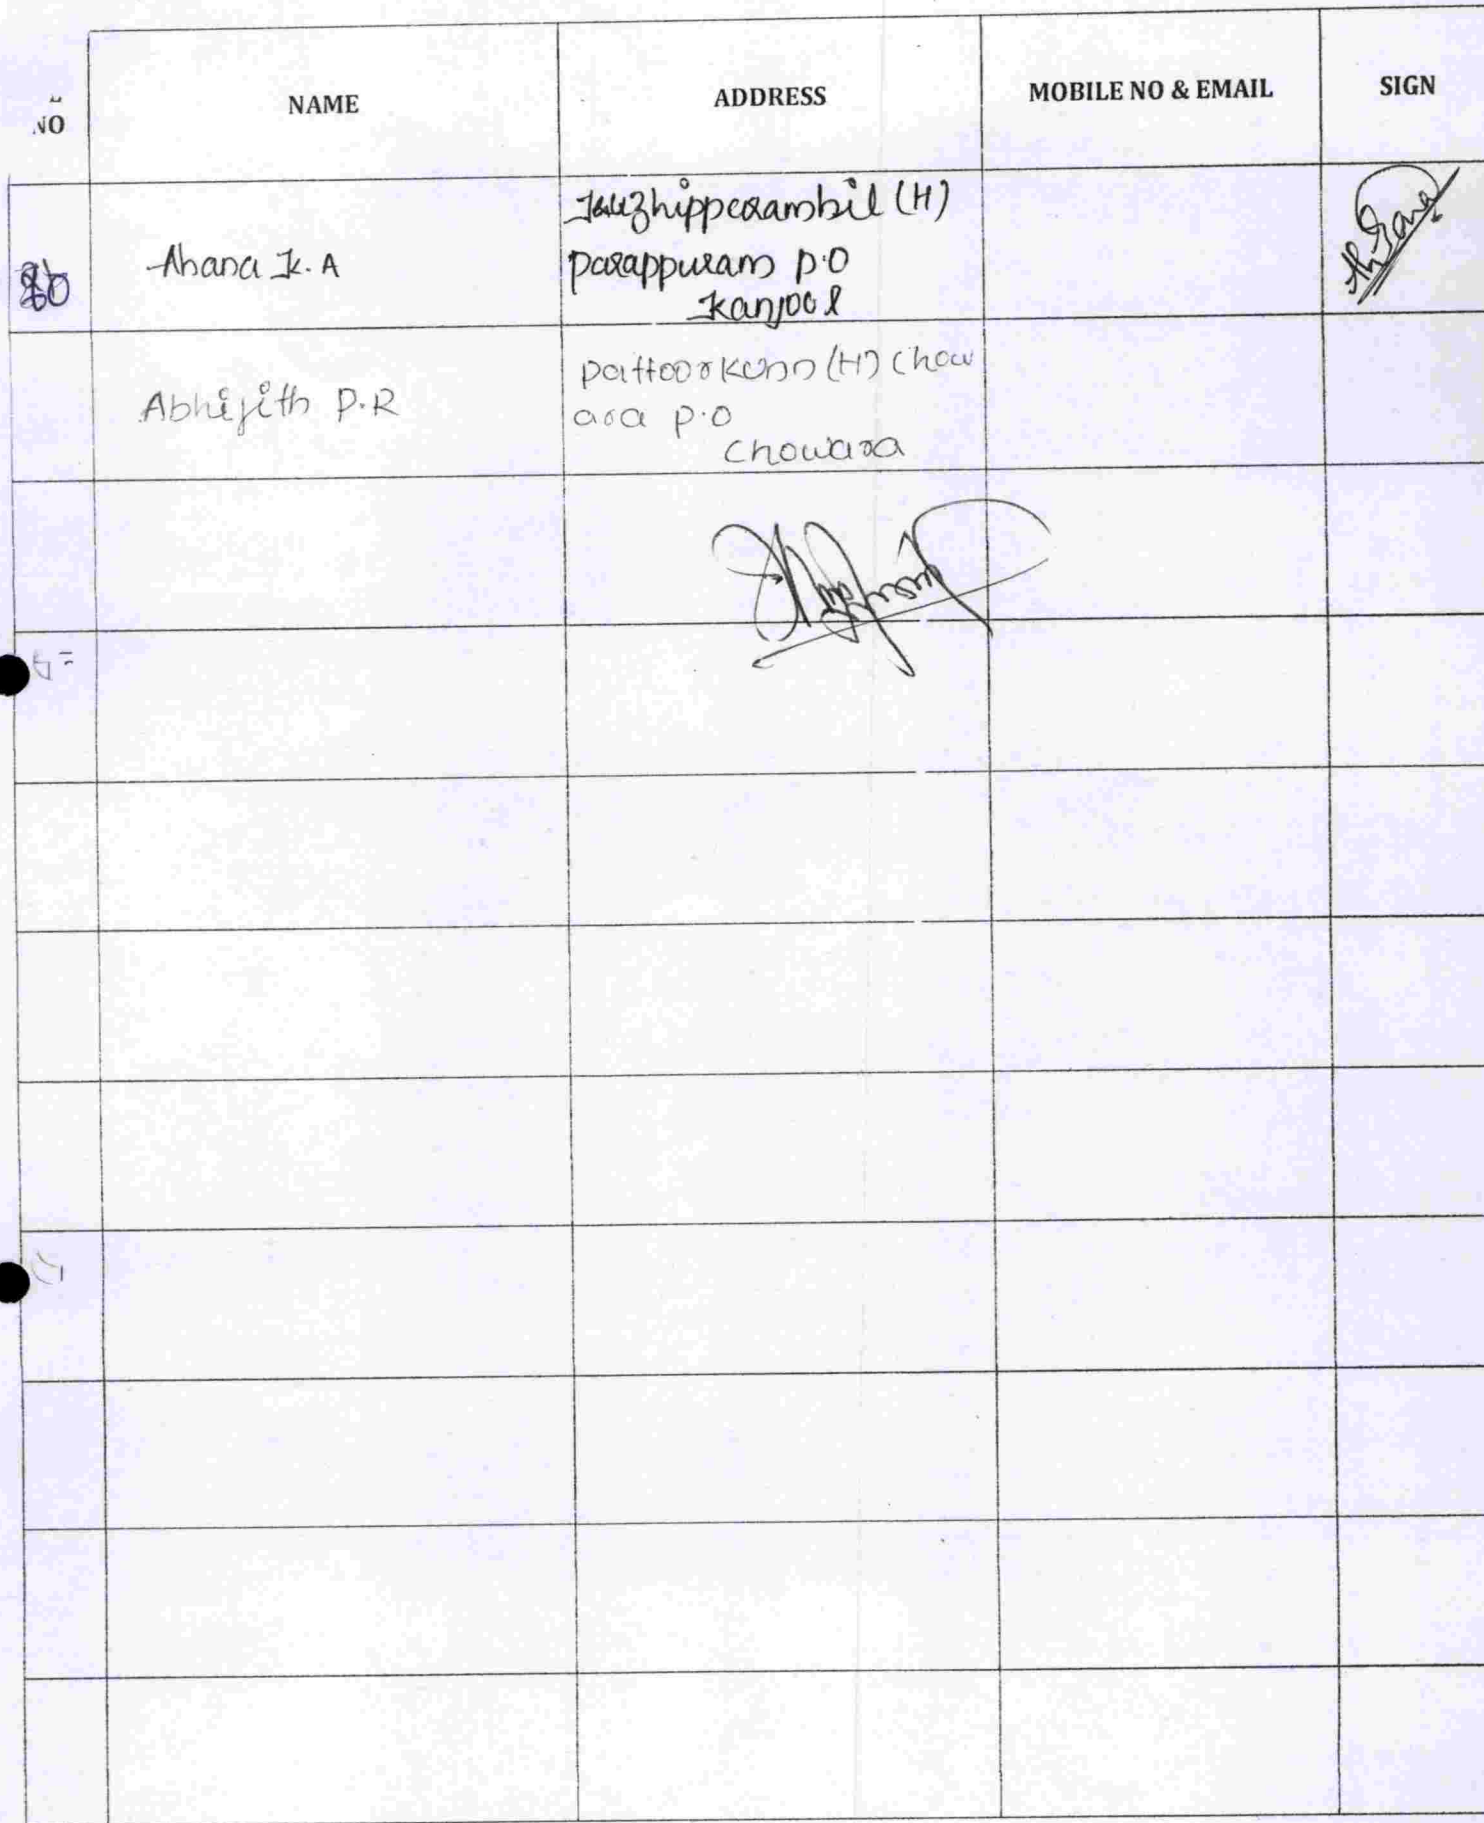 NO NAME ADDRESS MOBILE NO & EMAIL SIGN
Ahana K. A
(H)
Parappuram P.O
Kanjoor
Abhijith P.R
Pattoorkunn (H) Chow
ara P.O
Chowara